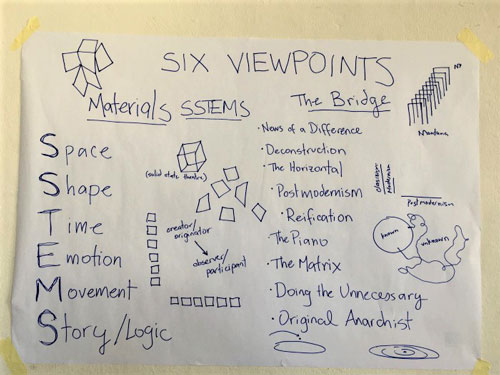 SIX VIEWPOINTS
Materials SSTEMS
Space
Shape
Time
Emotion
Movement
Story/Logic
(solid state theatre)
creator/
originator
observer/
participant
The Bridge
• News of a Difference
• Deconstruction
• The Horizontal
• Postmodernism
• Reification
• The Piano
• The Matrix
• Doing the Unnecessary
• Original Anarchist
Modernism
Postmodernism
known
unknown